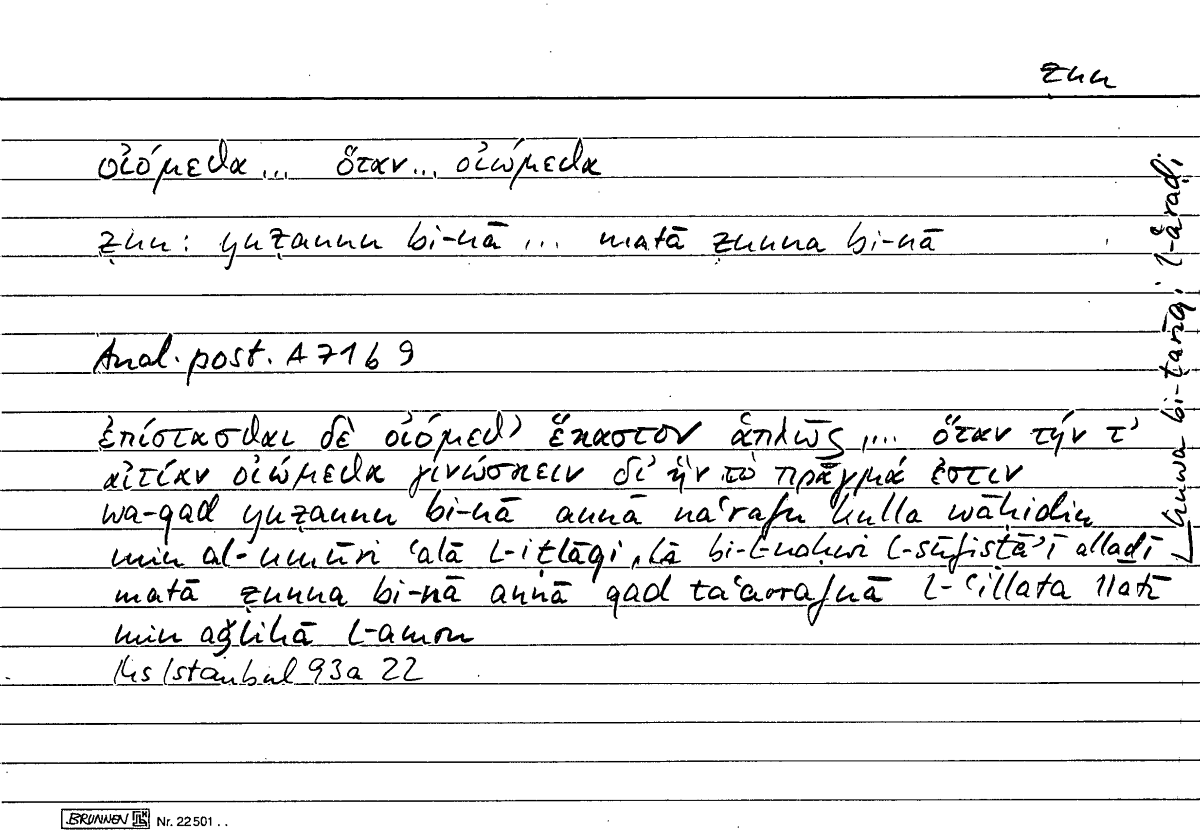 ẓnn
οἰόμεθα... ὅταν... οἰώμεθα
ẓnn: yuẓannu bi-nā ... matā ẓunna bi-nā
Anal. post. A 71 b 9
ἐπίστασθαι δὲ οἰόμεθ' ἕκαστον ἁπλῶς,... ὅταν τήν τ'
αἰτίαν οἰώμεθα γινώσκειν δι' ἣν τὸ πρᾶγμά ἐστιν
wa-qad yuẓannu bi-nā annā na'rafu kulla wāḥidin
min al-umūri 'alā l-iṭlāqi, lā bi-l-naḥwi l-sūfisṭā'ī alladī
matā ẓunna bi-nā annā qad ta'arrafnā l-'illata llatī
min aǧlihā l-amru
Ms Istanbul 93a 22
huwa bi-ṭarīqi l-'araḍi
BRUNNEN Nr. 22501 . .